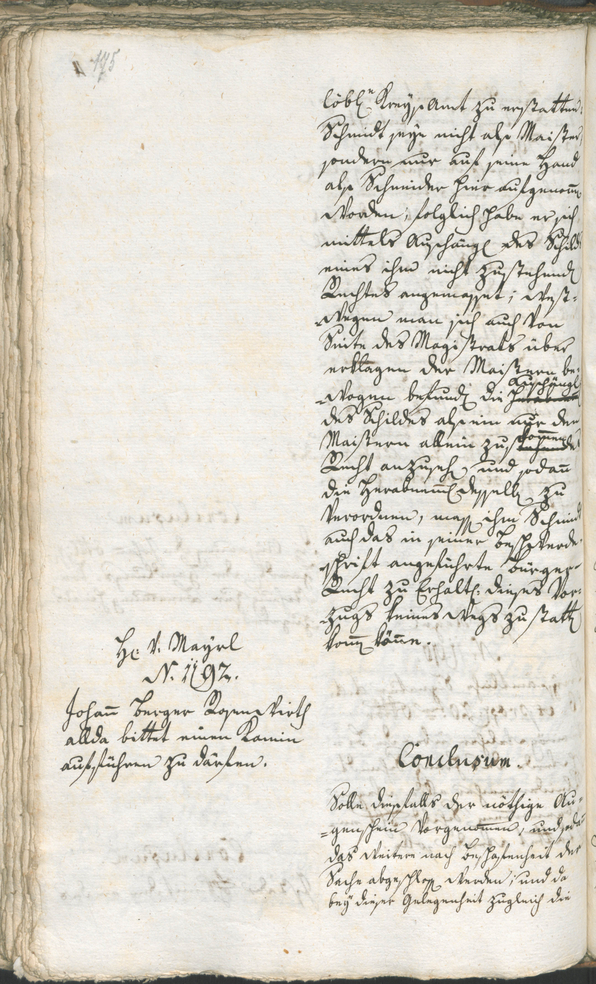 175
löbl. Kreys Amt zu erstatten
Schmidt seye nicht als Maister
sondern nur auf seine Hand
als Schneider hier aufgenom̅
worden, folglich habe er sich
mittels Aushängl des Schild
eines ihm nicht zustehend
Rechtes angemasset; West-
wegen man sich auch von
Seite des Magistrats über
erklagen der Maistern be-
wogen befund die Aushängl
des Schildes als ein nur den
Maistern allein zukom̅en
Recht anzuseh, und sodan̅
die Herabnam̅ desselb zu
verordnen, mass ihm Schmid
auch das in seiner Beschwerde-
schrift angeführte Bürger-
Recht zu Erhalt: dieses Vor-
zugs keines wegs zu statt
kom̅ kön̅e.
Hr. v. Mayrl
N. 1192.
Johan̅ Berger Rosenwirth
allda bittet einen Kamin
aufführen zu därfen.
Conclusum
Solle diesfalls der nöthige Au-
genschein vorgenom̅en, und sodan̅
das Weitere nach Beschafenheit der
Sache abgeschloss werden; und da
bey dieser Gelegenheit zugleich die